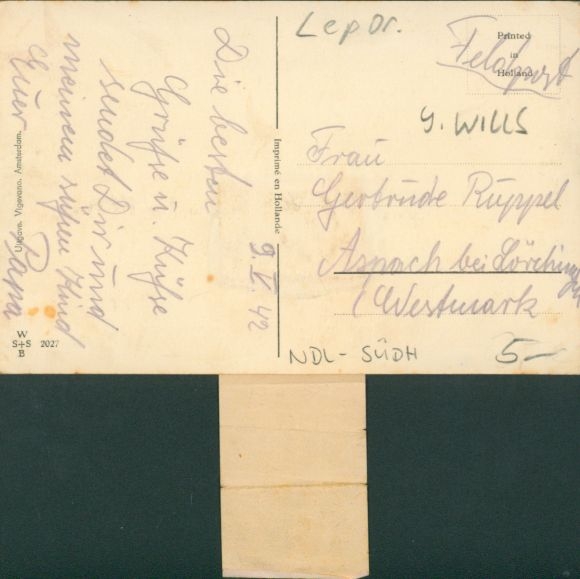 Lepor.
Printed
in
Holland
Feldpost
G. WILLS
Frau
Gertrude Ruppel
Aspach bei Lörchingen
(Westmark
NDL - SÜDH
5-
Imprimé en Hollande
9. V. 42
Die besten
Grüße u. Küße
sendet Dir und
meinem süßen Kind
Euer Papa
Uitgave. Vigevano. Amsterdam.
W
S+S 2027
B